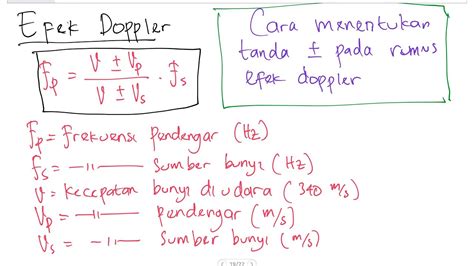 Efek Doppler
fp = v ± vp / v ± vs . fs
Cara menentukan
tanda ± pada rumus
efek doppler
fp = frekuensi pendengar (Hz)
fs = —॥— sumber bunyi (Hz)
v = kecepatan bunyi di udara (340 m/s)
vp = —॥— pendengar (m/s)
vs = —॥— sumber bunyi (m/s)
19/22